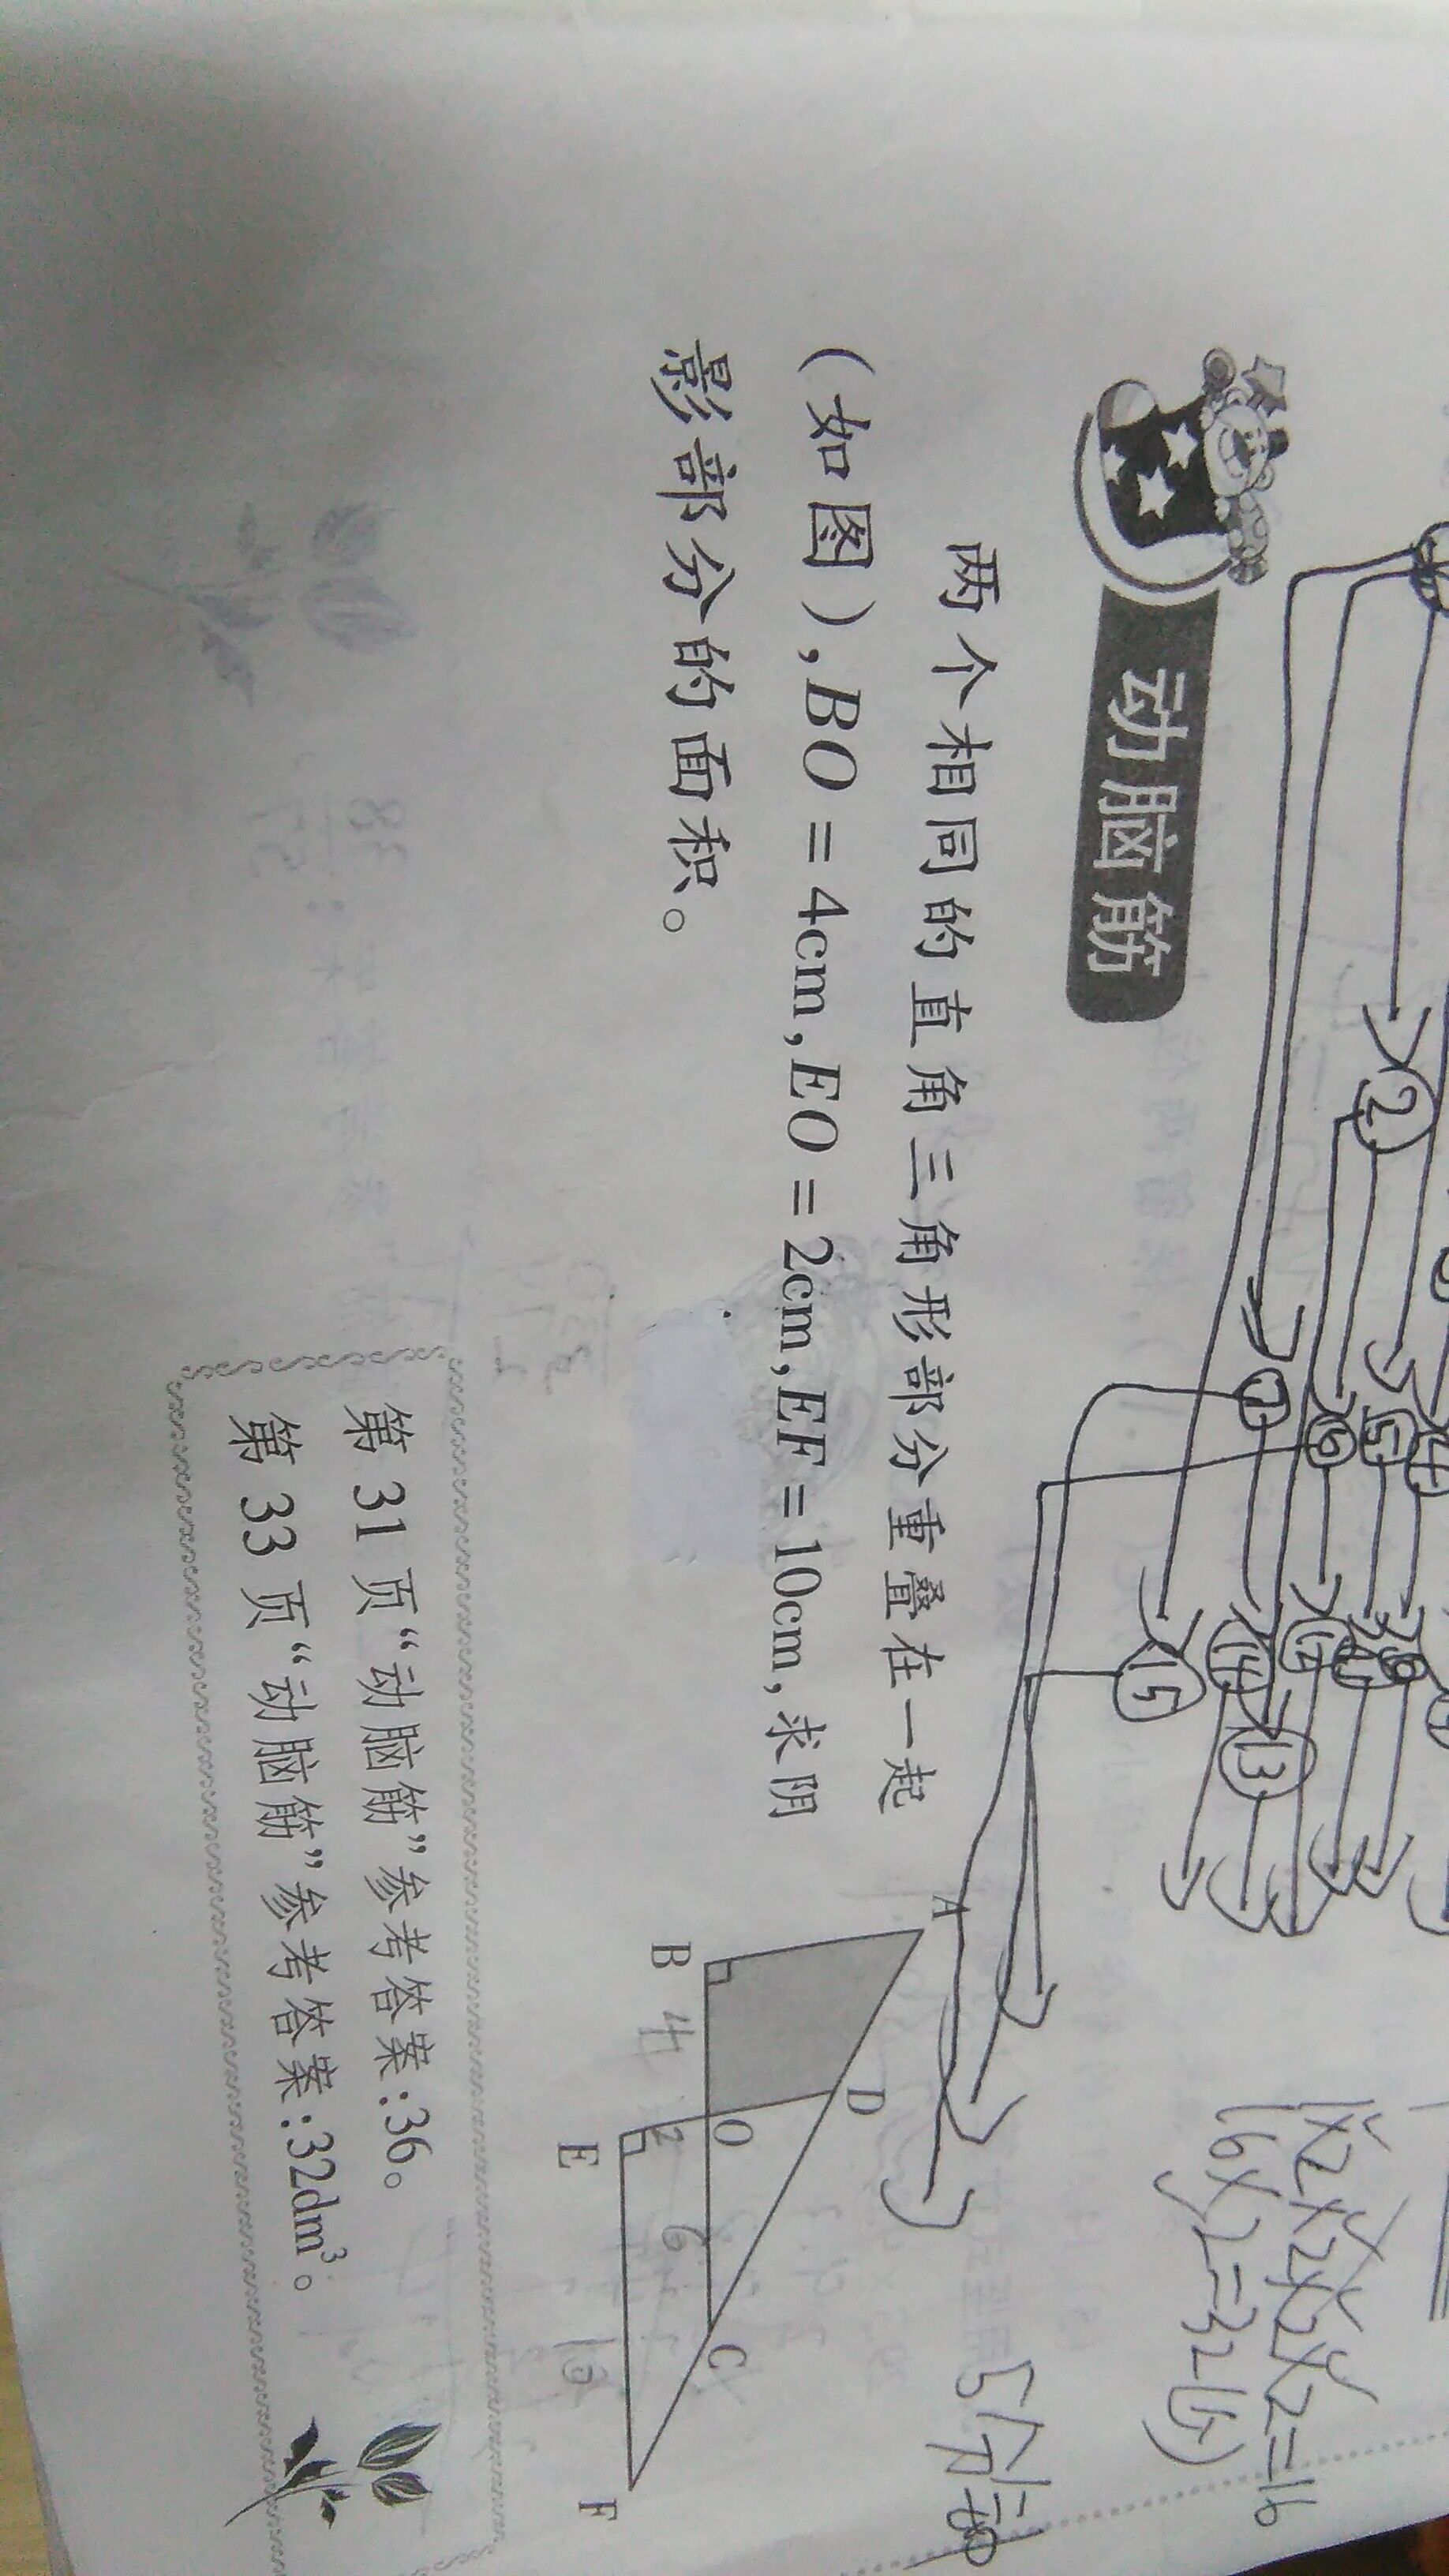 动脑筋
两个相同的直角三角形部分重叠在一起
(如图),BO=4cm,EO=2cm,EF=10cm,求阴
影部分的面积。
A
D
B
4
O
2
6
C
E
10
F
第31页“动脑筋”参考答案:36。
第33页“动脑筋”参考答案:32dm³。
2
7
6
15
14
13
15
16×2=32(分)
5分钟